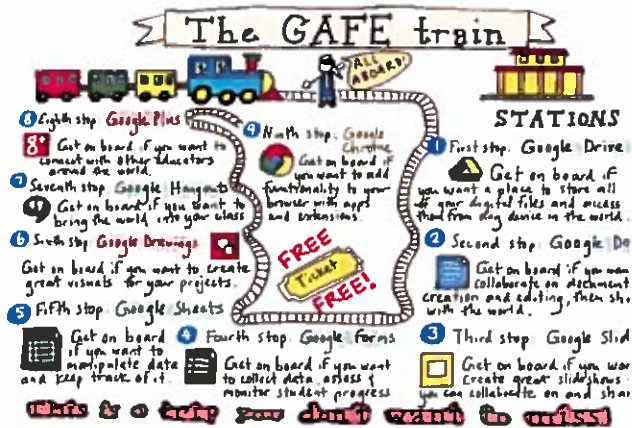 The GAFE train
ALL
ABOARD!
STATIONS
1 First stop. Google Drive
Get on board if
you want a place to store all
of your digital files and access
them from any device in the world.
2 Second stop Google Do
Get on board if you wan
collaborate on document
creation and editing, then sh
with the world.
3 Third stop. Google Slid
Get on board if you wan
create great slideshows
you can collaborate on and shar
4 Fourth stop. Google Forms
Get on board if you want
to collect data, assess &
monitor student progress
5 Fifth stop. Google Sheets
Get on board
if you want to
manipulate data
and keep track of it.
6 Sixth stop Google Drawings
Get on board if you want to create
great visuals for your projects.
7 Seventh stop. Google Hangouts
Get on board if you want to
bring the world into your class
8 Eighth stop. Google Plus
8+
Get on board if you want to
connect with other educators
around the world.
9 Ninth stop. Google
Chrome
Get on board if
you want to add
functionality to your
browser with apps
and extensions.
FREE
Ticket
FREE!
This is a trip you don't want to miss!